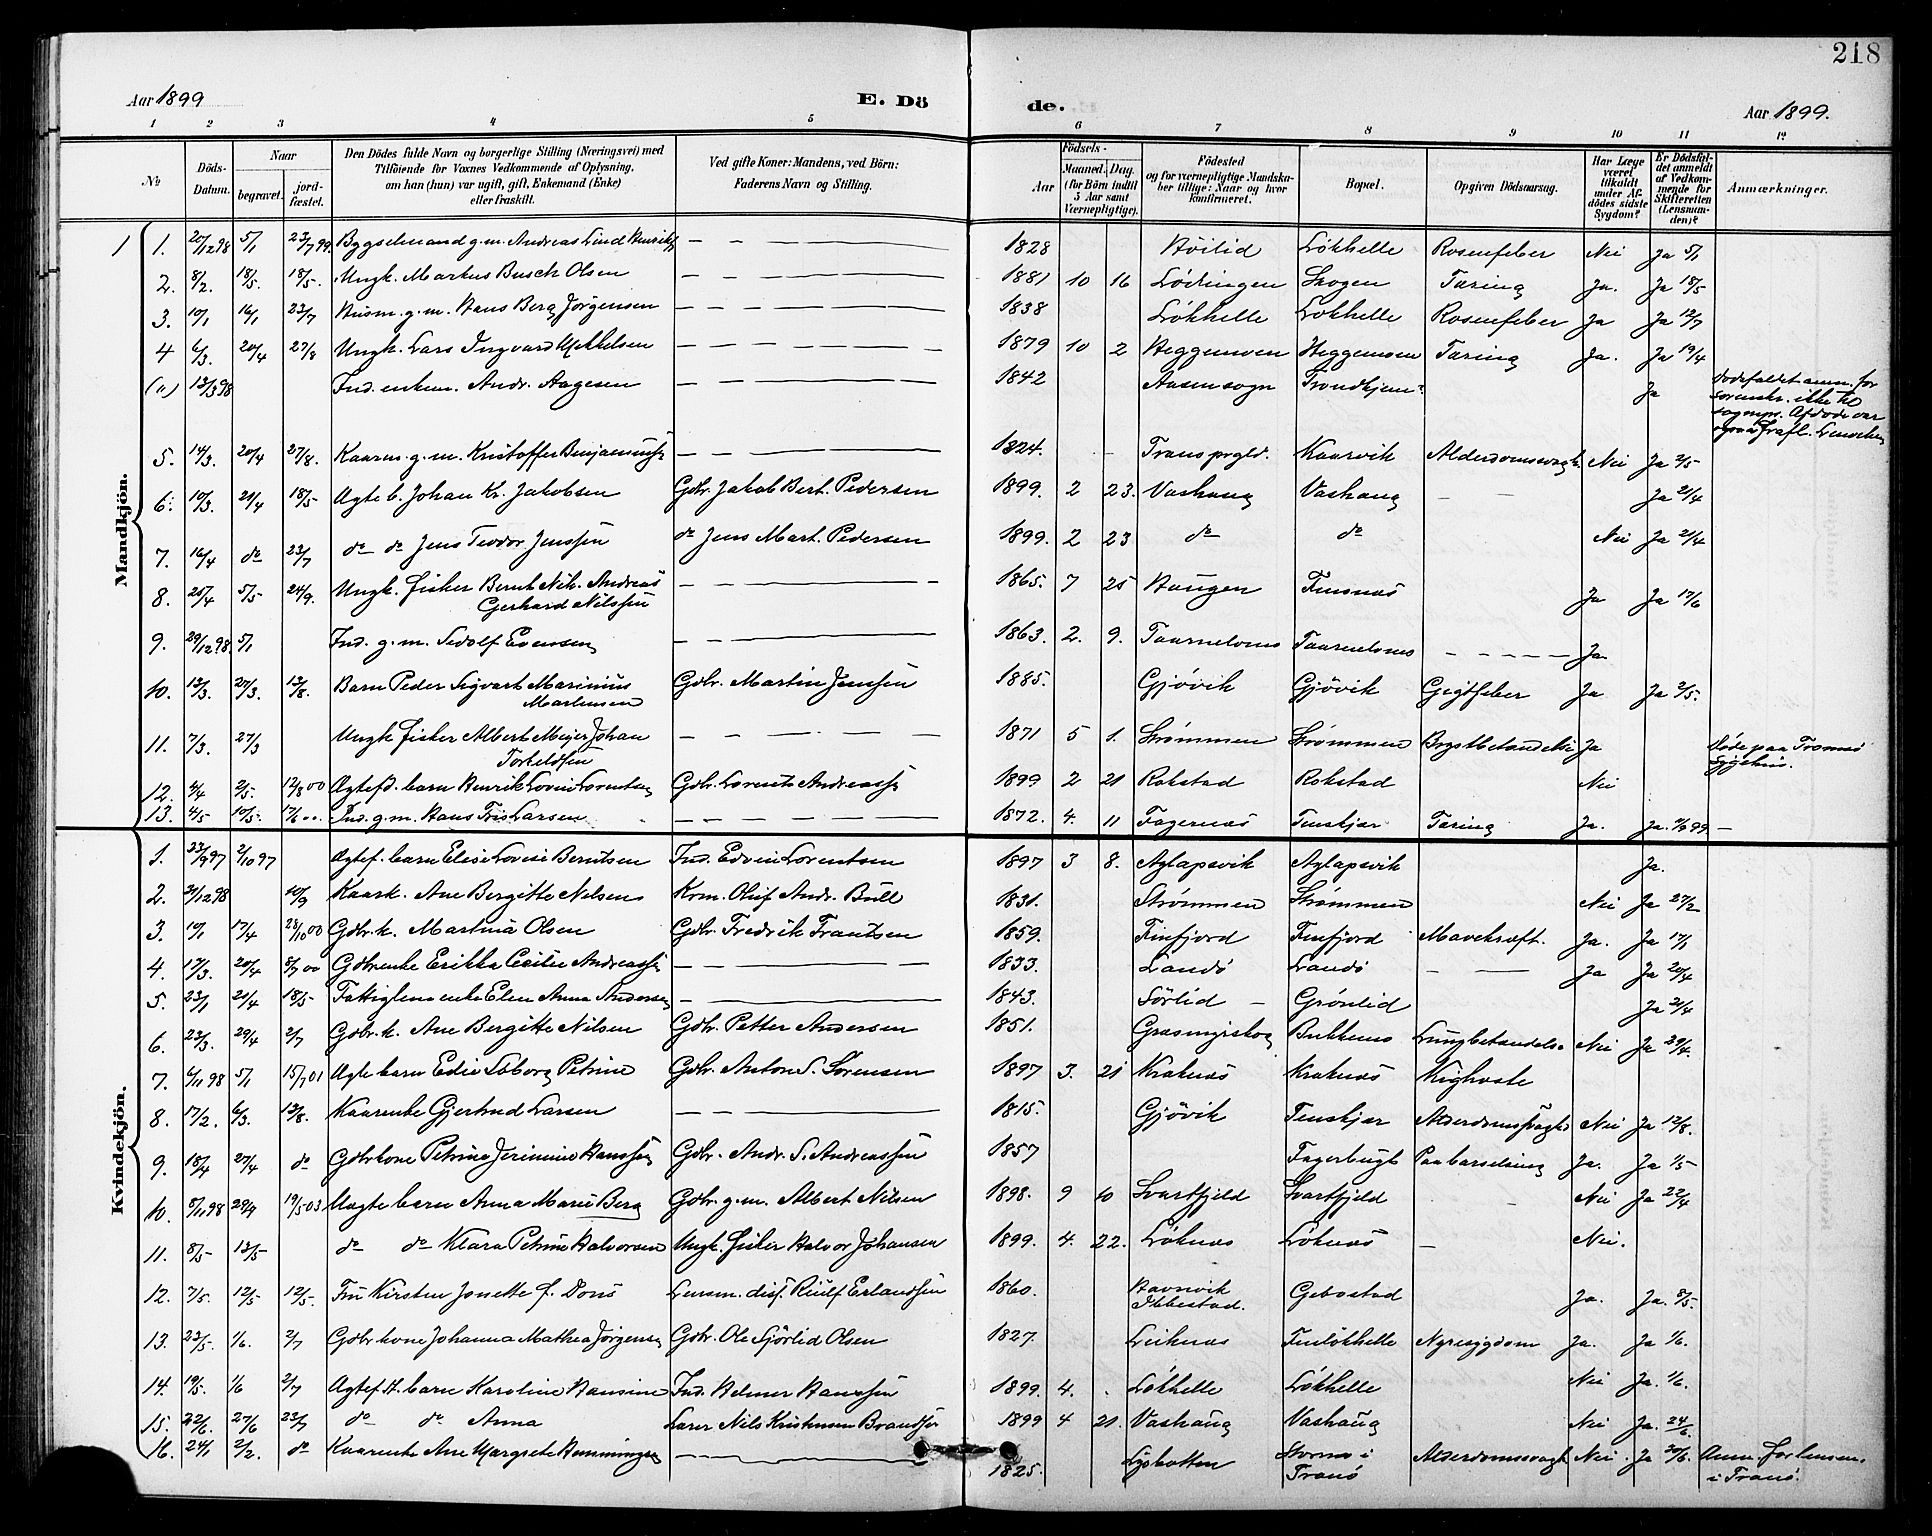 218
Aar 1899
E. Dö
de.
Aar 1899.
1 2 3 4 5 6 7 8 9 10 11 12
№ Döds-Datum. Naar begravet. jord-fæstet. Den Dödes fulde Navn og borgerlige Stilling (Næringsvei) med Tilföiende for Voxnes Vedkommende af Oplysning, om han (hun) var ugift, gift, Enkemand (Enke) eller fraskilt. Ved gifte Koner: Mandens, ved Börn: Faderens Navn og Stilling. Födsels- Aar Maaned. Dag. (for Börn indtil 5 Aar samt Værnepligtige). Födested og for værnepligtige Mandskaber tillige: Naar og hvor konfirmeret. Bopæl. Opgiven Dödsaarsag. Har Læge været tilkaldt under Afdödes sidste Sygdom? Er Dödsfaldet anmeldt af Vedkommende for Skifteretten (Lensmanden)? Anmærkninger.
Mandkjön.
1 1. 20/12 98 5/1 23/7 99. Bygselmand g.m. Andreas Lind Henriks. 1828 Höilid Løkhelle Rosenfeber Nei Ja 5/1
2. 8/2. 18/5. 18/5. Ungk. Markus Busch Olsen 1881 10 16 Lødingen Skogen Tæring Ja. Ja 18/5
3. 10/1 16/1 23/7 Husm. g.m. Hans Berg Jørgensen 1838 Løkhelle Løkhelle Rosenfeber Ja Ja 12/7
4 6/3. 20/4 27/8 Ungk. Lars Ingvard Mikkelsen 1879 10 2 Heggemoen Heggemoen Tæring Ja. Ja 19/4
(a) 13/3 98 Ind. enkem. Andr. Aagesen 1842 Aasen sogn Trondhjem Ja Dødsfaldet anm. for sorenskr. ikke til
5. 14/3. 20/4 27/8. Kaarm. g.m. Kristoffer Benjamins. 1824. Tranø prgld. Kaarvik Alderdomssvagh. Nei Ja 2/5
6. 10/3. 21/4 18/5 Ægte b. Johan Kr. Jakobsen Gdbr. Jakob Bert. Pedersen 1899. 2 23. Vashaug Vashaug Ja 21/4
7. 16/4 do 23/7 do do Jens Teodor Jenssen do Jens Mart. Pedersen 1899. 2 23 do do Nei Ja 21/4
8. 20/4 5/5 24/9. Ungk. fisker Bernt Nik. Andreas Gerhard Nilssen 1865. 7 25 Haugen Finsnæs Ja Ja 17/6
9. 29/12 98. 5/1 Ind. g.m. Sedolf Evensen 1863. 2. 9. Taarnelvnes Taarnelvnes Ja
10. 13/3. 27/3. 13/8. Barn Peder Sigvart Marinius Martinsen Gdbr. Martin Jenssen 1885. Gjövik Gjövik Gigtfeber Ja Ja 2/5.
11. 7/3. 27/3 Ungk. fisker Albert Meijer Johan Torkeldsen 1871 5 1. Strømmen Strømmen Brystbetændelse Ja Døde paa Tromsø sygehus.
12. 4/4 2/5. 12/8 00 Ægtefd. barn Henrik Lovin Lorentsen Gdbr. Lorents Andreass. 1899 2 21 Rokstad Rokstad Nei
13. 4/5 10/5. 17/6 00. Ind. g.m. Hans Friis Larsen 1872. 4. 11 Fagernæs Tenskjær Tæring Ja. Ja.
Kvindekjön.
1. 23/9 97 2/10 97 Ægtef. barn Elise Lovise Berntsen Ind. Edvin Lorentsen 1897 3 8. Aglapsvik Aglapsvik Ja.
2. 31/12 98 10/9 Kaark. Ane Bergitte Nilsen Krm. Oluf Andr. Bull 1831. Strømmen Strømmen Nei Ja 27/2
3. 10/1 17/4 28/10 00 Gdbr.k. Martina Olsen Gdbr. Fredrik Frantsen 1859. Finfjord Finfjord Mavekræft. Ja. Ja 17/1
4. 17/3. 20/4 8/7 00 Gdbrenke Erikka Cecilie Andreass. 1833. Landö Landö Ja Ja 20/4
5. 23/1 21/4 18/5 Fattiglemsenke Elen Anna Andersen 1843. Sörlid Grönlid Ja 21/4
6. 23/3. 29/4 2/7 Gdbr.k. Ane Bergitte Nilsen Gdbr. Petter Andersen 1851. Græsmyrskog Bukkenes Lungbetændelse Nei Ja 29/4.
7. 6/11 98 5/1 15/7 01 Ægte barn Edie Soborg Petrine Gdbr. Anton S. Sørensen 1897 3. 21 Kraknæs Kraknæs Kighoste
8. 17/2. 6/3. 13/8. Kaarenke Gjertrud Larsen 1815. Gjövik Tenskjær Alderdomssvaghd Nei Ja 12/8.
9. 18/4 27/4 do Gdbrkone Petrine Jerimine Hanssen Gdbr. Andr. S. Andreassen 1857 Fagerbugt Paa barselseng Ja. Ja 1/5
10. 8/11 98 29/4 19/5 03 Uægte barn Anna Marie Berg Gdbr. g.m. Albert Nilsen 1898. 9 10 Svartfjeld Svartfjeld Nei Ja 22/4
11. 8/5 13/5 do do Klara Petrine Halvorsen Ungk. fisker Halvor Johansen 1899. 4. 22. Løknæs Løknæs Nei.
12. 7/5. 12/5 12/5. Fru Kirsten Jonette f. Dons Lensm. disp. Riulf Erlandsen 1860. Havnvik Ibbestad. Gebostad Ja. Ja. 8/5.
13. 23/5. 1/6. 2/7 Gdbrkone Johanna Mathea Jörgensen Gdbr. Ole Sjörlid Olsen 1827. Leiknæs Finløkhelle Nyresygdom Ja. Ja 1/6.
14. 19/5. 1/6 2/7 Ægtef. barn Karoline Hansine Ind. Helmer Hanssen 1899. 4. Løkhelle Løkhelle Nei Ja. 1/6.
15. 22/6. 27/6 23/7 do do Anna Lærer Nils Kristensen Brandsfj. 1899 4 21. Vashaug Vashaug Nei Ja. 24/6
16. 24/1 2/2. do Kaarenke Ane Margrete Hemmingsen 1825. Lysbotten i Tranö Alderdomssvagh. Nei. Ja 30/6. Anm. for lensm. i Tranö.